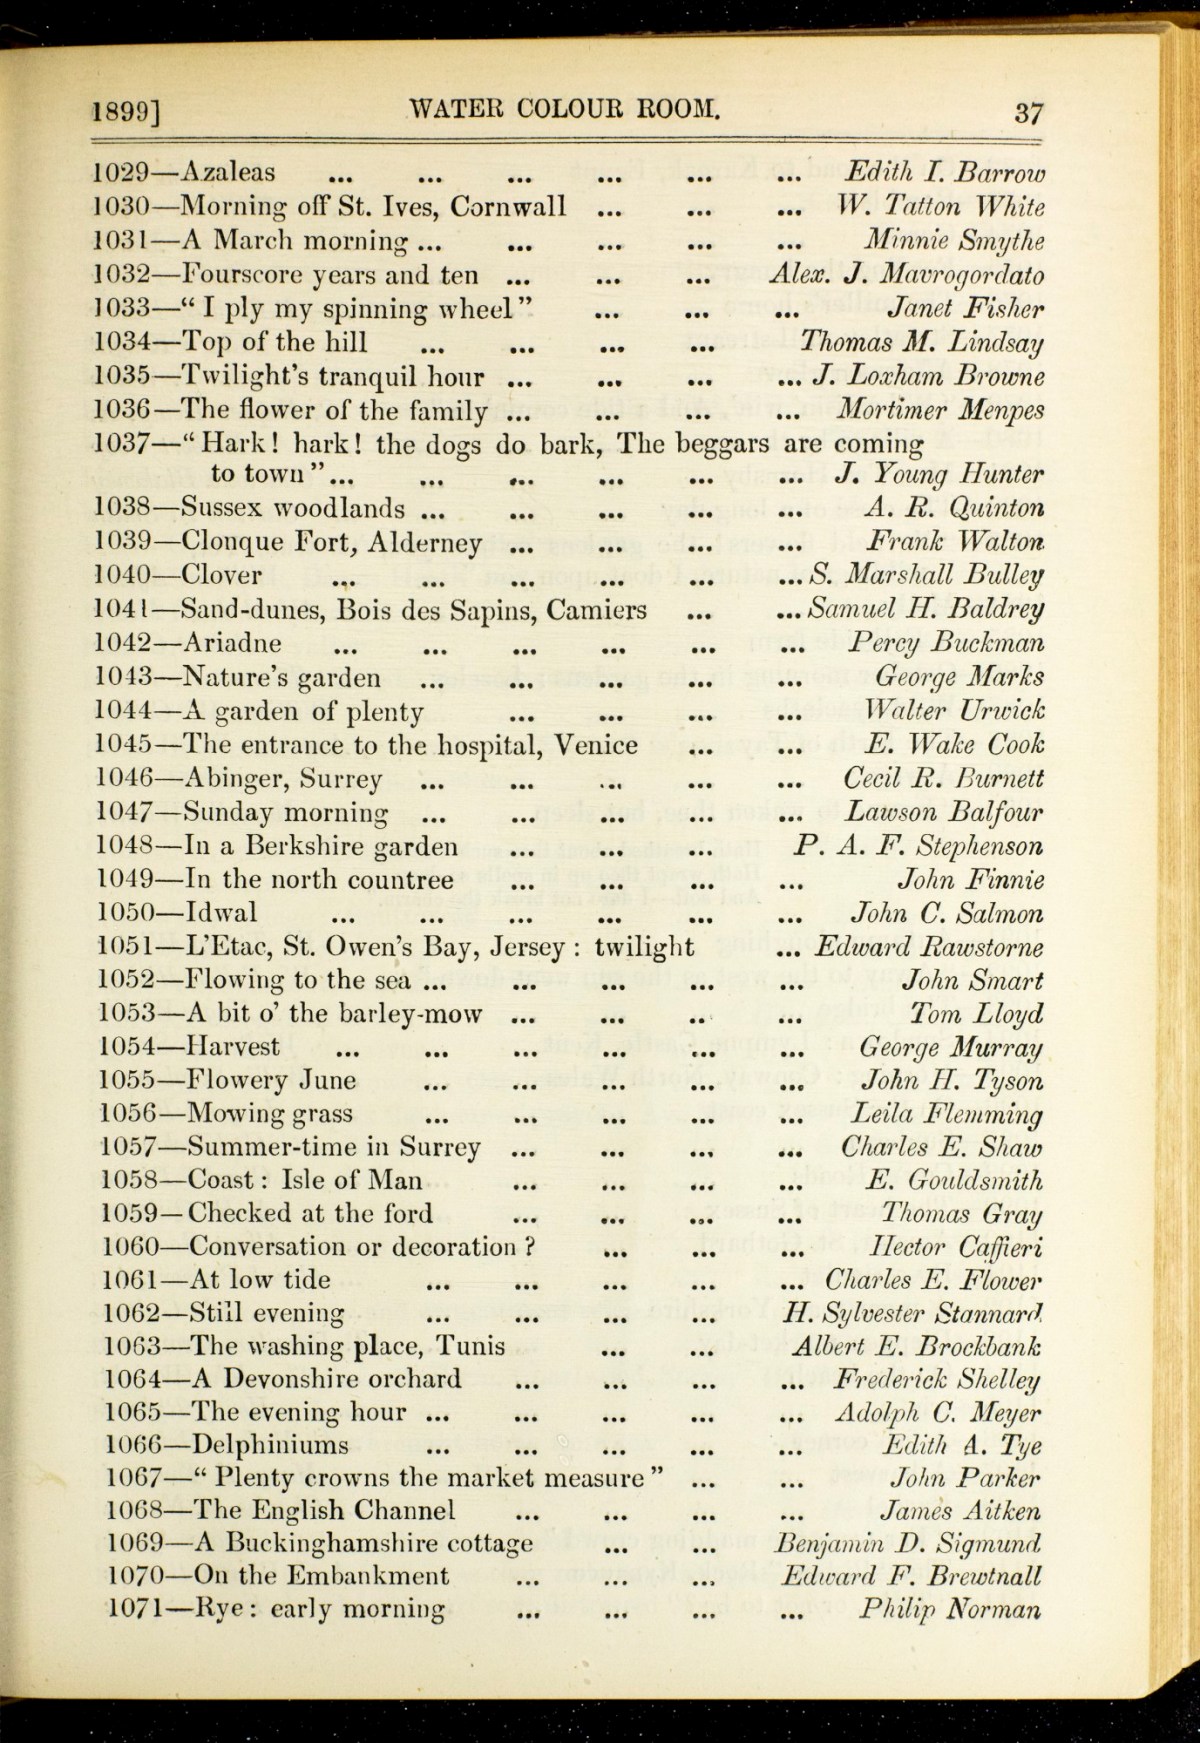 1899] WATER COLOUR ROOM. 37
1029—Azaleas ... ... ... ... ... ... Edith I. Barrow
1030—Morning off St. Ives, Cornwall ... ... ... W. Tatton White
1031—A March morning ... ... ... ... ... Minnie Smythe
1032—Fourscore years and ten ... ... ... Alex. J. Mavrogordato
1033—“ I ply my spinning wheel” ... ... ... Janet Fisher
1034—Top of the hill ... ... ... ... Thomas M. Lindsay
1035—Twilight’s tranquil hour ... ... ... ... J. Loxham Browne
1036—The flower of the family ... ... ... ... Mortimer Menpes
1037—“ Hark! hark! the dogs do bark, The beggars are coming
to town ”... ... ... ... ... ... J. Young Hunter
1038—Sussex woodlands ... ... ... ... ... A. R. Quinton
1039—Clonque Fort, Alderney ... ... ... ... Frank Walton
1040—Clover ... ... ... ... ... ... S. Marshall Bulley
1041—Sand-dunes, Bois des Sapins, Camiers ... ... Samuel H. Baldrey
1042—Ariadne ... ... ... ... ... ... Percy Buckman
1043—Nature’s garden ... ... ... ... ... George Marks
1044—A garden of plenty ... ... ... ... Walter Urwick
1045—The entrance to the hospital, Venice ... ... E. Wake Cook
1046—Abinger, Surrey ... ... ... ... ... Cecil R. Burnett
1047—Sunday morning ... ... ... ... ... Lawson Balfour
1048—In a Berkshire garden ... ... ... P. A. F. Stephenson
1049—In the north countree ... ... ... ... John Finnie
1050—Idwal ... ... ... ... ... ... John C. Salmon
1051—L’Etac, St. Owen’s Bay, Jersey : twilight ... Edward Rawstorne
1052—Flowing to the sea ... ... ... ... ... John Smart
1053—A bit o’ the barley-mow ... ... .. ... Tom Lloyd
1054—Harvest ... ... ... ... ... ... George Murray
1055—Flowery June ... ... ... ... ... John H. Tyson
1056—Mowing grass ... ... ... ... ... Leila Flemming
1057—Summer-time in Surrey ... ... ... ... Charles E. Shaw
1058—Coast : Isle of Man ... ... ... ... E. Gouldsmith
1059—Checked at the ford ... ... ... ... Thomas Gray
1060—Conversation or decoration ? ... ... ... Hector Caffieri
1061—At low tide ... ... ... ... ... Charles E. Flower
1062—Still evening ... ... ... ... H. Sylvester Stannard
1063—The washing place, Tunis ... ... Albert E. Brockbank
1064—A Devonshire orchard ... ... ... ... Frederick Shelley
1065—The evening hour ... ... ... ... ... Adolph C. Meyer
1066—Delphiniums ... ... ... ... ... Edith A. Tye
1067—“ Plenty crowns the market measure ” ... ... John Parker
1068—The English Channel ... ... ... ... James Aitken
1069—A Buckinghamshire cottage ... ... Benjamin D. Sigmund
1070—On the Embankment ... ... ... Edward F. Brewtnall
1071—Rye : early morning ... ... ... ... Philip Norman